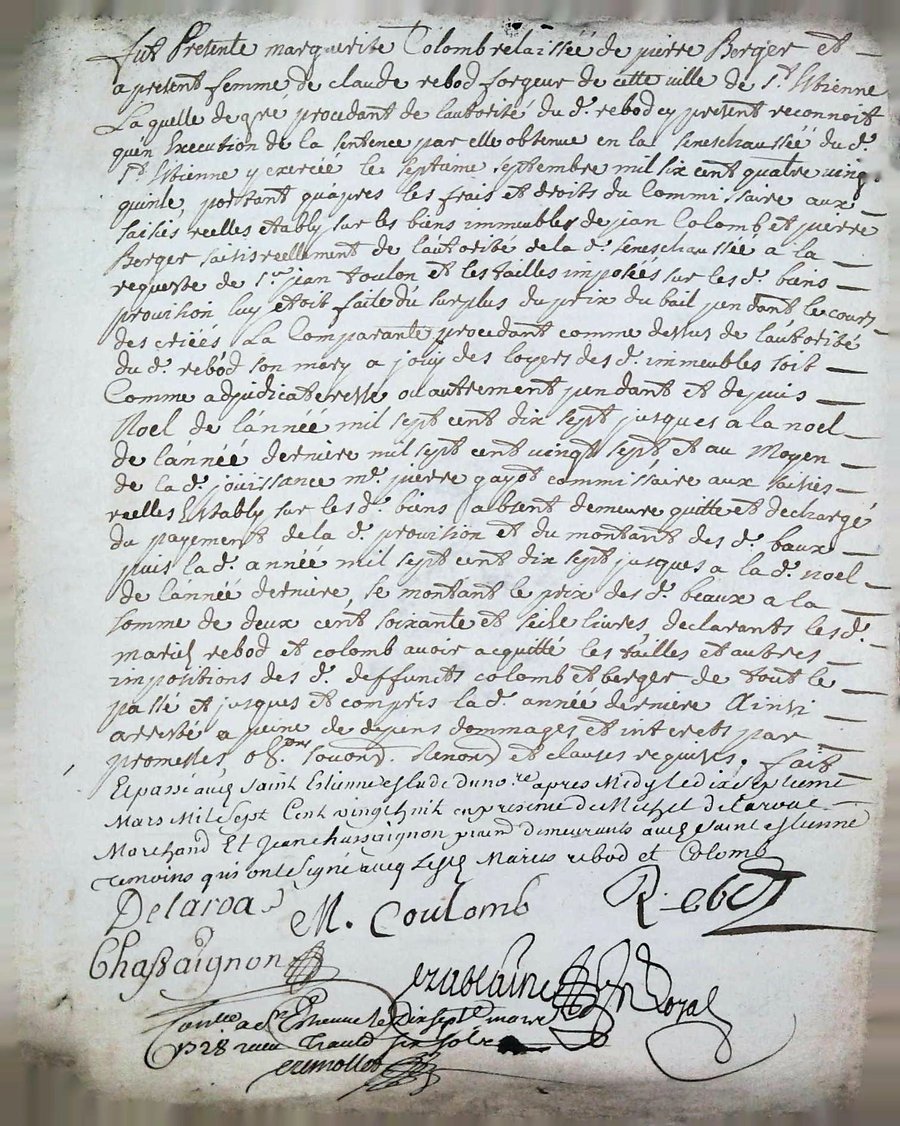 fut Presente marguerite Colomb relaissée de pierre Berger et
a present femme de claude rebod forgeur de cette ville de St. Etienne
La quelle de gré procedant de lautorité du d. rebod cy present reconnoit
quén Execution de la sentence par elle obtenue en la seneschaussée du d.
St. Etienne y exercéé le septieme septembre mil six cent quatre ving
quinse portant quápres les frais et droits du Commissaire aux
saisies reelles etably sur les biens immeubles de jean Colomb et pierre
Berger saisis reellement de lautorite de la d. seneschaussée a la
requeste de sr. jean toulon et les tailles imposées sur les d. biens
provision luy etoit faite du surplus du prix du bail pendant le cours
des criéés La Comparante procedant comme dessus de lautorité
du d. rebod son mary a jouy des loyers des d. immeubles soit
Comme adjudicateresse ou autrement pendant et depuis
Noel de lánnéé mil sept cent dix sept jusques a la noel
de lánnéé derniere mil sept cent vingt sept et au Moyen
de la d. jouissance me. pierre gayot commissaire aux saisies
reelles Establÿ sur les d. biens absent demeure quitte et dechargé
du payement de la d. provision et du montant des d. baux
puis la d. année mil sept cent dix sept jusques a la d. noel
de lánnéé derniere, se montant le prix des d. beaux a la
somme de deux cent soixante et seise livres, declarants les d.
mariés rebod et colomb avoir acquitté les tailles et autres
impositions des d. deffuncts colomb et berger de tout le
passé et jusques et compris la d. année derniere Ainsi
arresté a peine de depens dommages et interets par
promesses obon. renond. et clauses requises, fait
Et passé aud. Saint Etienne estude du nore. apres Midy le dix septieme
Mars Mil sept Cent vingt huit en presence de Michel Delaroue
Marchand Et Jean chassaignon demeurants aud. Saint estienne
temoins qui ont signé avec Lesd. Maries rebod et Colomb
Delaroa
M. Coulomb
Rebod
Chassaignon
Etienne le dix sept mars
1728 six sols